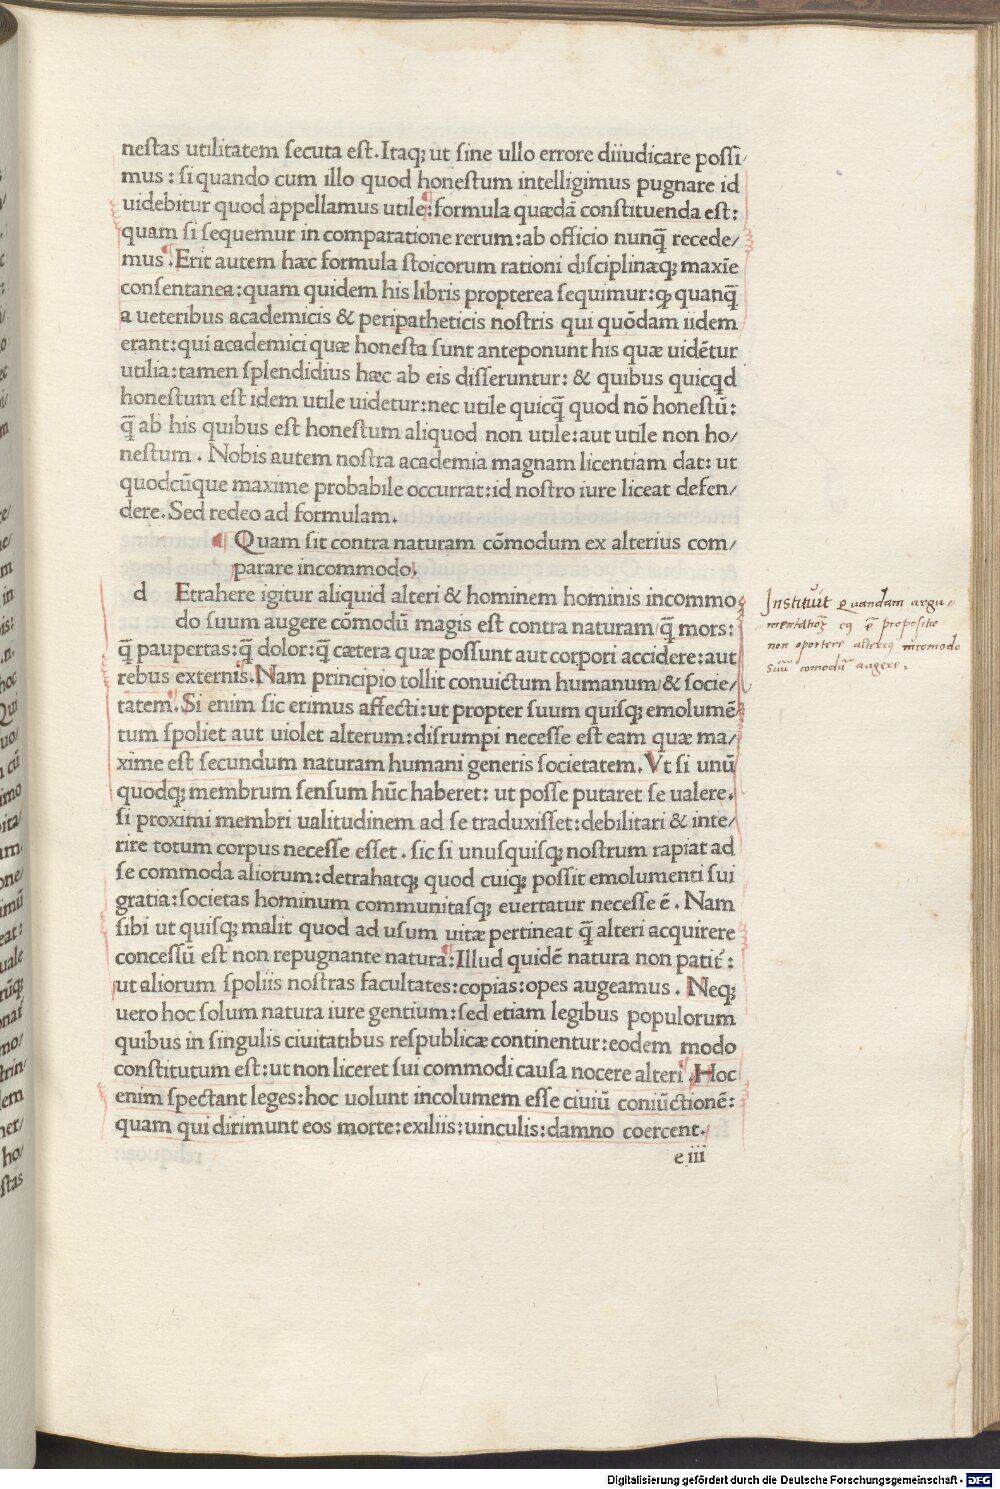 nestas utilitatem secuta est. Itaq; ut sine ullo errore diiudicare possi/
mus: si quando cum illo quod honestum intelligimus pugnare id
uidebitur quod appellamus utile: formula quædã constituenda est:
quam si sequemur in comparatione rerum: ab officio nunq̃ recede/
mus. Erit autem hæc formula stoicorum rationi disciplinæq; maxĩe
consentanea: quam quidem his libris propterea sequimur: ꝙ quanq̃
a ueteribus academicis & peripatheticis nostris qui quõdam iidem
erant: qui academici quæ honesta sunt anteponunt his quæ uidẽtur
utilia: tamen splendidius hæc ab eis disseruntur: & quibus quicqd
honestum est idem utile uidetur: nec utile quicq̃ quod nõ honestũ:
q̃ ab his quibus est honestum aliquod non utile: aut utile non ho/
nestum. Nobis autem nostra academia magnam licentiam dat: ut
quodcũque maxime probabile occurrat: id nostro iure liceat defen/
dere. Sed redeo ad formulam.
¶ Quam sit contra naturam cõmodum ex alterius com/
parare incommodo.
d Etrahere igitur aliquid alteri & hominem hominis incommo
do suum augere cõmodũ magis est contra naturam/q̃ mors:
q̃ paupertas: q̃ dolor: q̃ cætera quæ possunt aut corpori accidere: aut
rebus externis. Nam principio tollit conuictum humanum/& socie/
tatem. Si enim sic erimus affecti: ut propter suum quisq; emolumẽ
tum spoliet aut uiolet alterum: disrumpi necesse est eam quæ ma/
xime est secundum naturam humani generis societatem. Vt si unũ
quodq; membrum sensum hũc haberet: ut posse putaret se ualere.
si proximi membri ualitudinem ad se traduxisset: debilitari & inte/
rire totum corpus necesse esset. sic si unusquisq; nostrum rapiat ad
se commoda aliorum: detrahatq; quod cuiq; possit emolumenti sui
gratia: societas hominum communitasq; euertatur necesse ẽ. Nam
sibi ut quisq; malit quod ad usum uitæ pertineat q̃ alteri acquirere
concessũ est non repugnante natura: Illud quidẽ natura non patit̃:
ut aliorum spoliis nostras facultates: copias: opes augeamus. Neq;
uero hoc solum natura iure gentium: sed etiam legibus populorum
quibus in singulis ciuitatibus respublicæ continentur: eodem modo
constitutum est: ut non liceret sui commodi causa nocere alteri. Hoc
enim spectant leges: hoc uolunt incolumem esse ciuiũ coniũctionẽ:
quam qui dirimunt eos morte: exiliis: uinculis: damno coercent.
e iii
Instituit quandam argu/
mentationẽ cuius ẽ propositio
non oportere alterius incomodo
suũ comodũ augere.